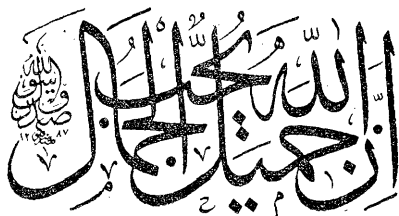 اِنَّ اللهَ جَمِيلٌ يُحِبُّ الجَمَالَ
صدق رسول الله